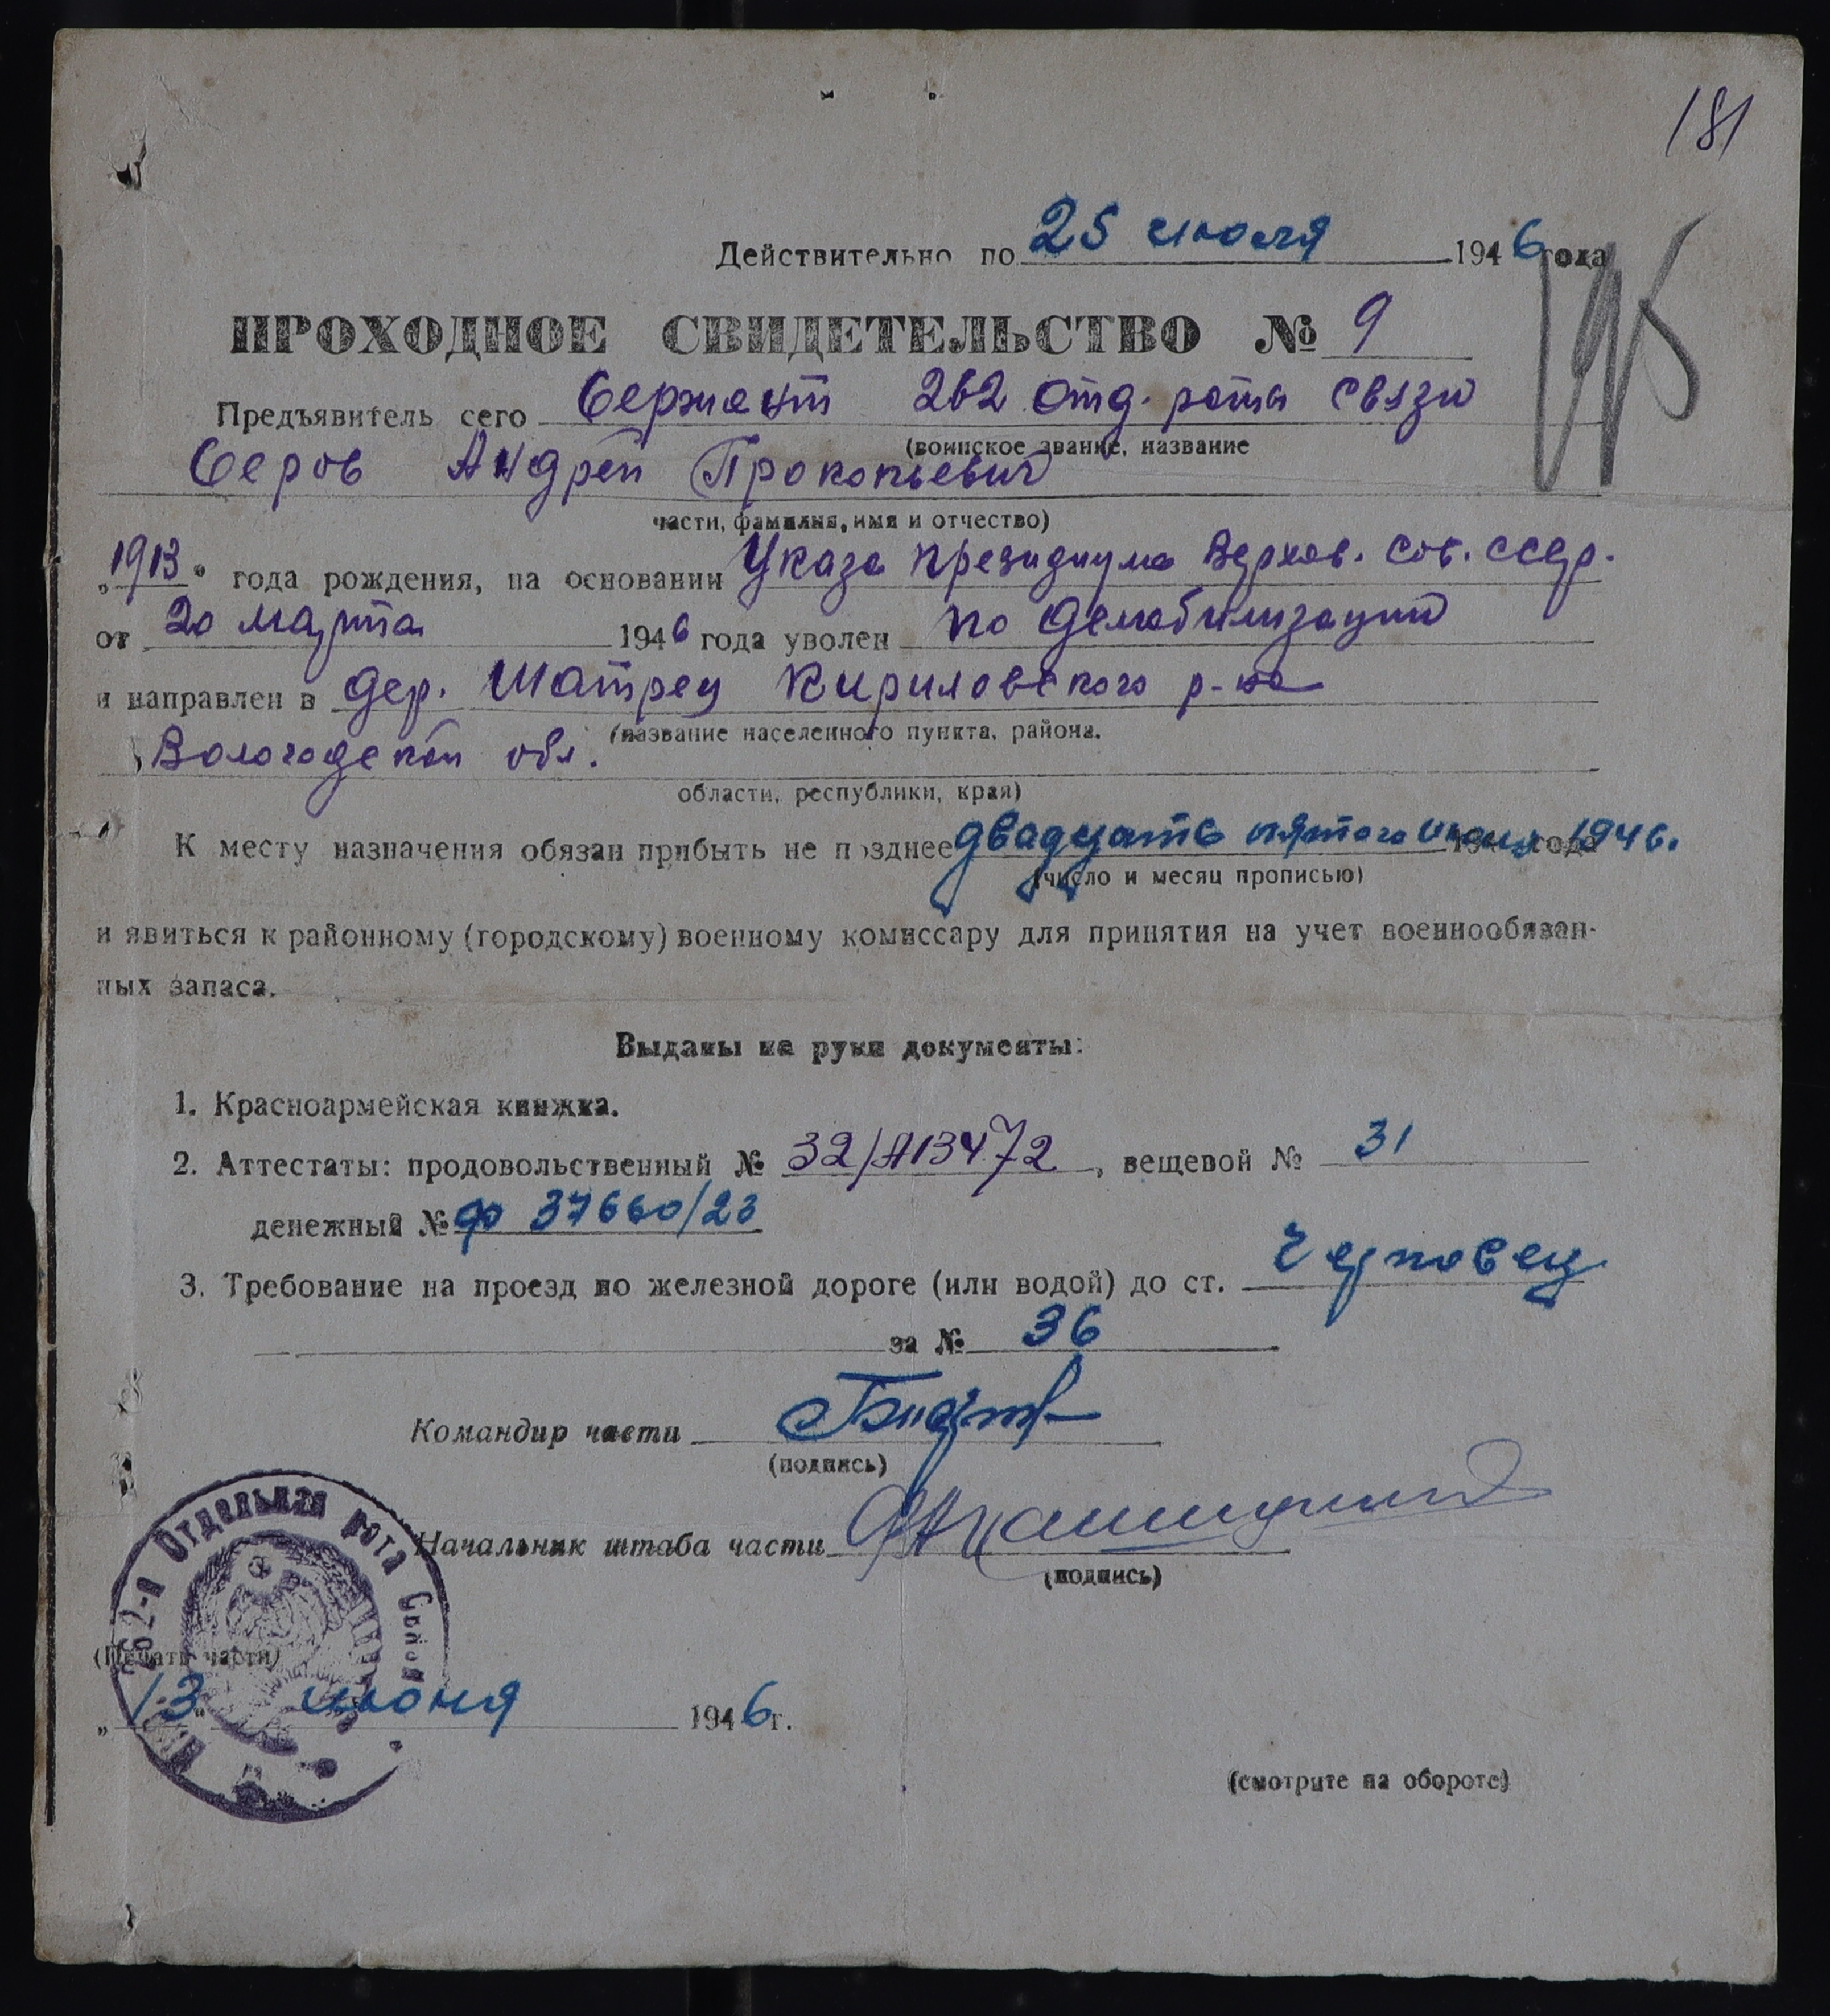 181
Действительно по 25 июля 1946 года
ПРОХОДНОЕ СВИДЕТЕЛЬСТВО № 9
Предъявитель сего Сержант 262 отд. рота связи
(воинское звание, название
Серов Андрей Прокопьевич
части, фамилия, имя и отчество)
„1913" года рождения, на основании Указа президиума Верхов. Сов. СССР.
от 20 марта 1946 года уволен по демобилизации
и направлен в дер. Шатрец Кириловского р-на
(название населенного пункта, района,
Вологодской обл.
области, республики, края)
К месту назначения обязан прибыть не позднее двадцать пятого июля 1946.
(число и месяц прописью)
и явиться к районному (городскому) военному комиссару для принятия на учет военнообязан-
ных запаса.
Выданы на руки документы:
1. Красноармейская книжка.
2. Аттестаты: продовольственный № 32/А13472, вещевой № 31
денежный № ф 37660/23
3. Требование на проезд по железной дороге (или водой) до ст. Череповец
за № 36
Командир части
(подпись)
Начальник штаба части
(подпись)
262-я Отдельная рота Связи
(Печать части)
„13" июня 1946 г.
(смотрите на обороте)